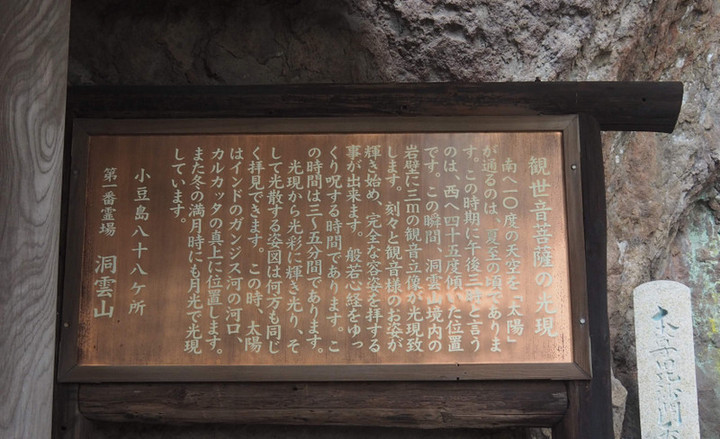 観世音菩薩の光現
南へ一〇度の天空を「太陽」
が通るのは、夏至の頃でありま
す。この時期に午後三時と言う
のは、西へ四十五度傾いた位置
です。この瞬間、洞雲山境内の
岩壁に三mの観音立像が光現致
します。刻々と観音様のお姿が
輝き始め、完全な容姿を拝する
事が出来ます。般若心経をゆっ
くり呪する時間であります。こ
の時間は三〜五分間であります。
光現から光彩に輝き光り、そ
して光散する姿図は何方も同じ
く拝見できます。この時、太陽
はインドのガンジス河の河口、
カルカッタの真上に位置します。
また冬の満月時にも月光で光現
しています。
小豆島八十八ヶ所
第一番霊場 洞雲山